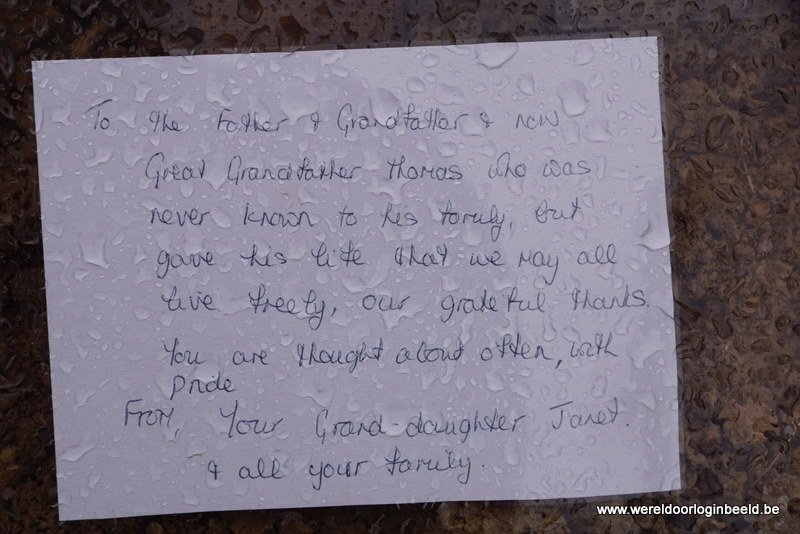 To the Father & Grandfather & now
Great Grandfather Thomas who was
never known to his family, but
gave his life that we may all
live freely, our grateful thanks.
You are thought about often, with
Pride
From, Your Grand-daughter Janet.
& all your family.
www.wereldoorloginbeeld.be